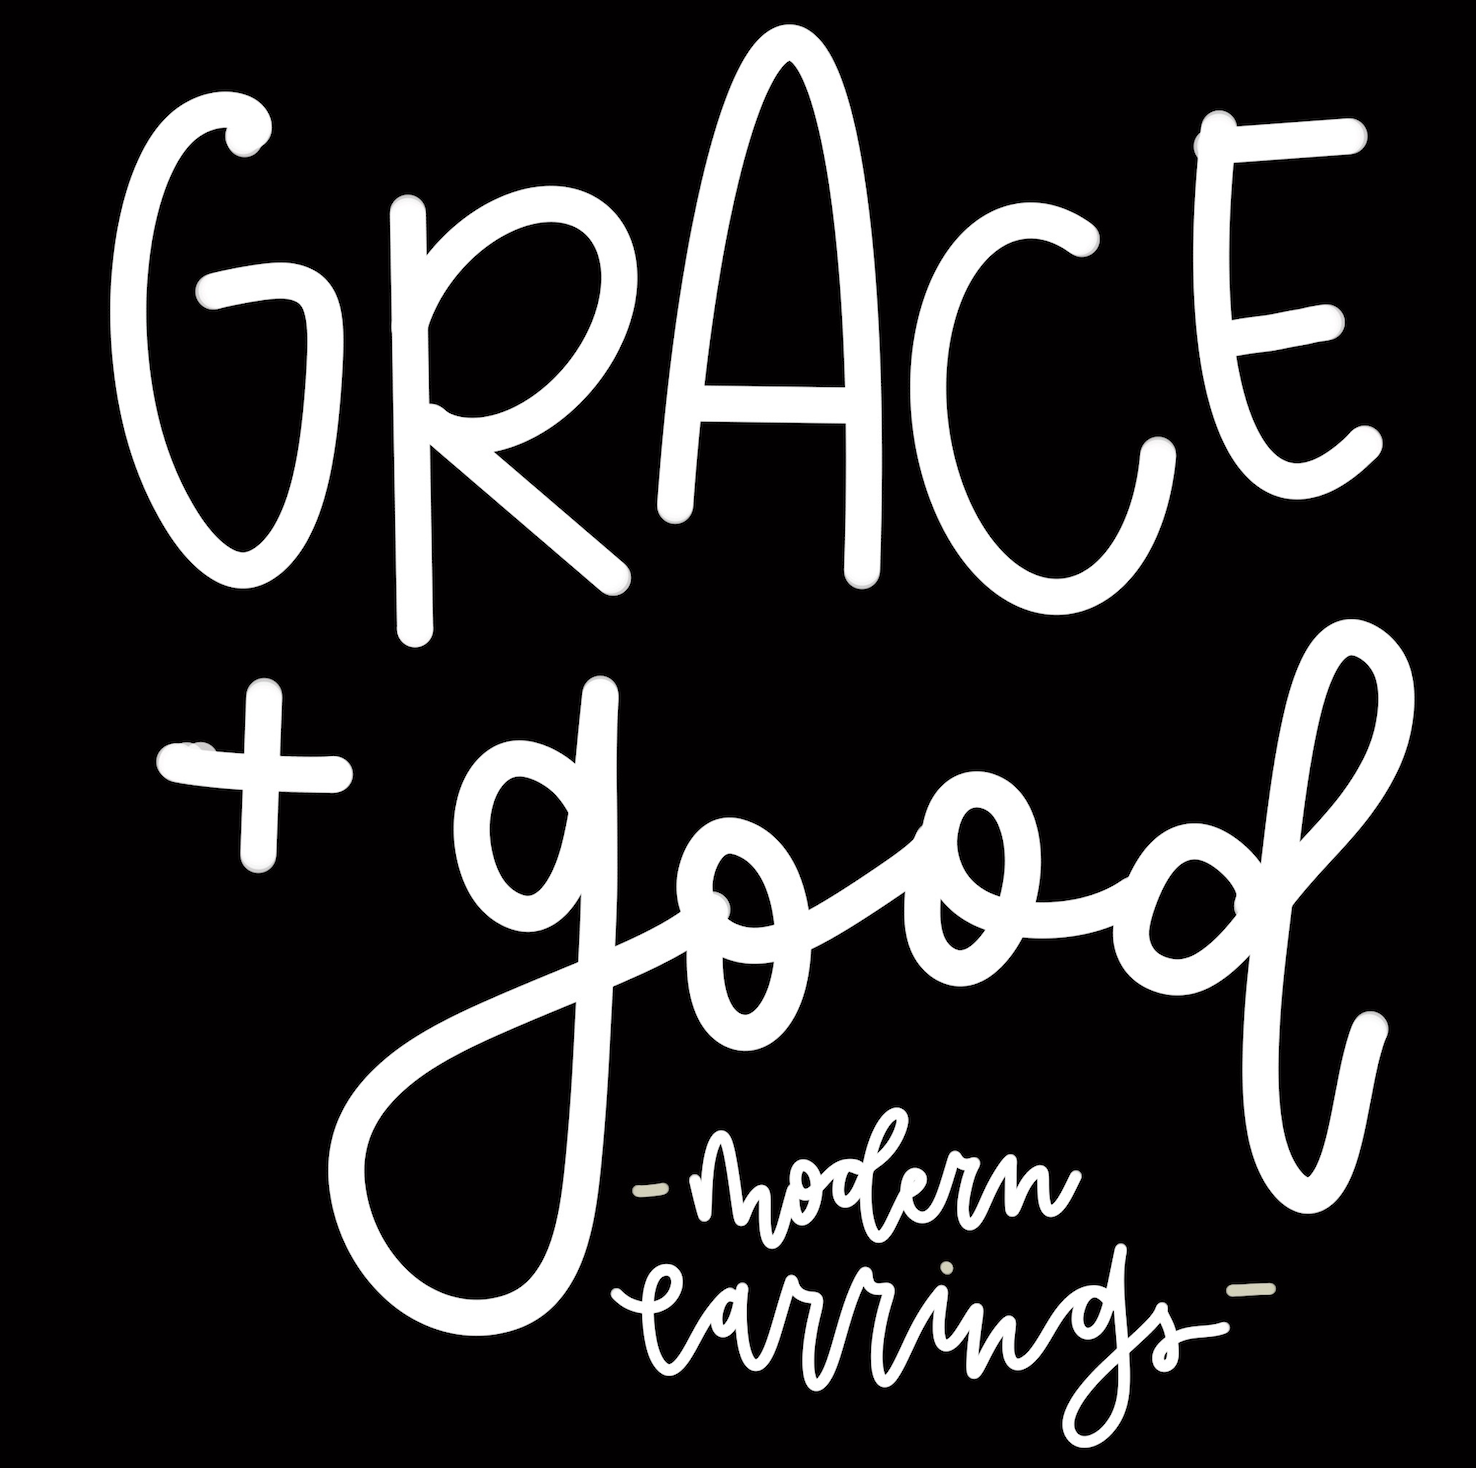 GRACE
+ good
- modern
earrings -